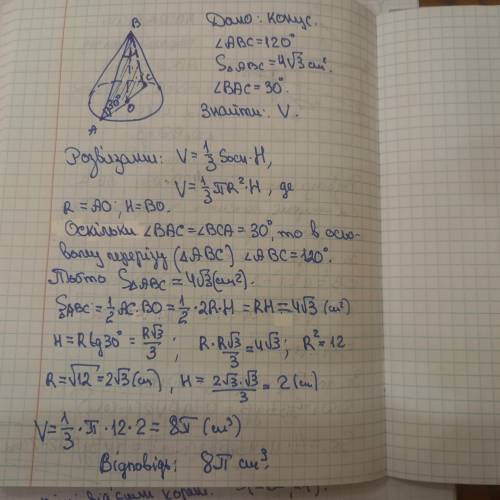 B
C
30°
O
A
Дано: конус.
∠ABC=120°
S△ABC=4√3 см².
∠BAC=30°.
Знайти: V.
Розв'язання: V=1/3 Sосн·H,
V=1/3 πR²·H, де
R=AO; H=BO.
Оскільки ∠BAC=∠BCA=30°, то в осьо-
вому перерізу (△ABC) ∠ABC=120°.
Тобто S△ABC=4√3(см²).
S△ABC=1/2 AC·BO=1/2·2R·H=RH=4√3 (см²)
H=Rtg30°=R√3/3; R·R√3/3=4√3; R²=12
R=√12=2√3(см), H=2√3·√3/3=2(см)
V=1/3·π·12·2=8π (см³)
Відповідь: 8π см³.